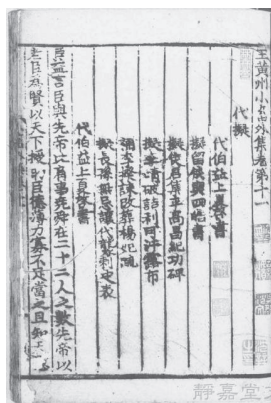 王黃州小畜外集卷第十一
代擬
代伯益上夏啓書
擬留侯與四皓書
擬侯君集平高昌紀功碑
擬李靖破頡利可汗露布
彌子瑕諫改葬楊妃疏
擬長孫無忌讓代襲刺史表
代伯益上夏啓書
臣益言臣與先帝比肩事堯舜在二十二人之數先帝以
臣為賢以天下授臣臣德薄力寡不足當之且知
靜嘉堂文